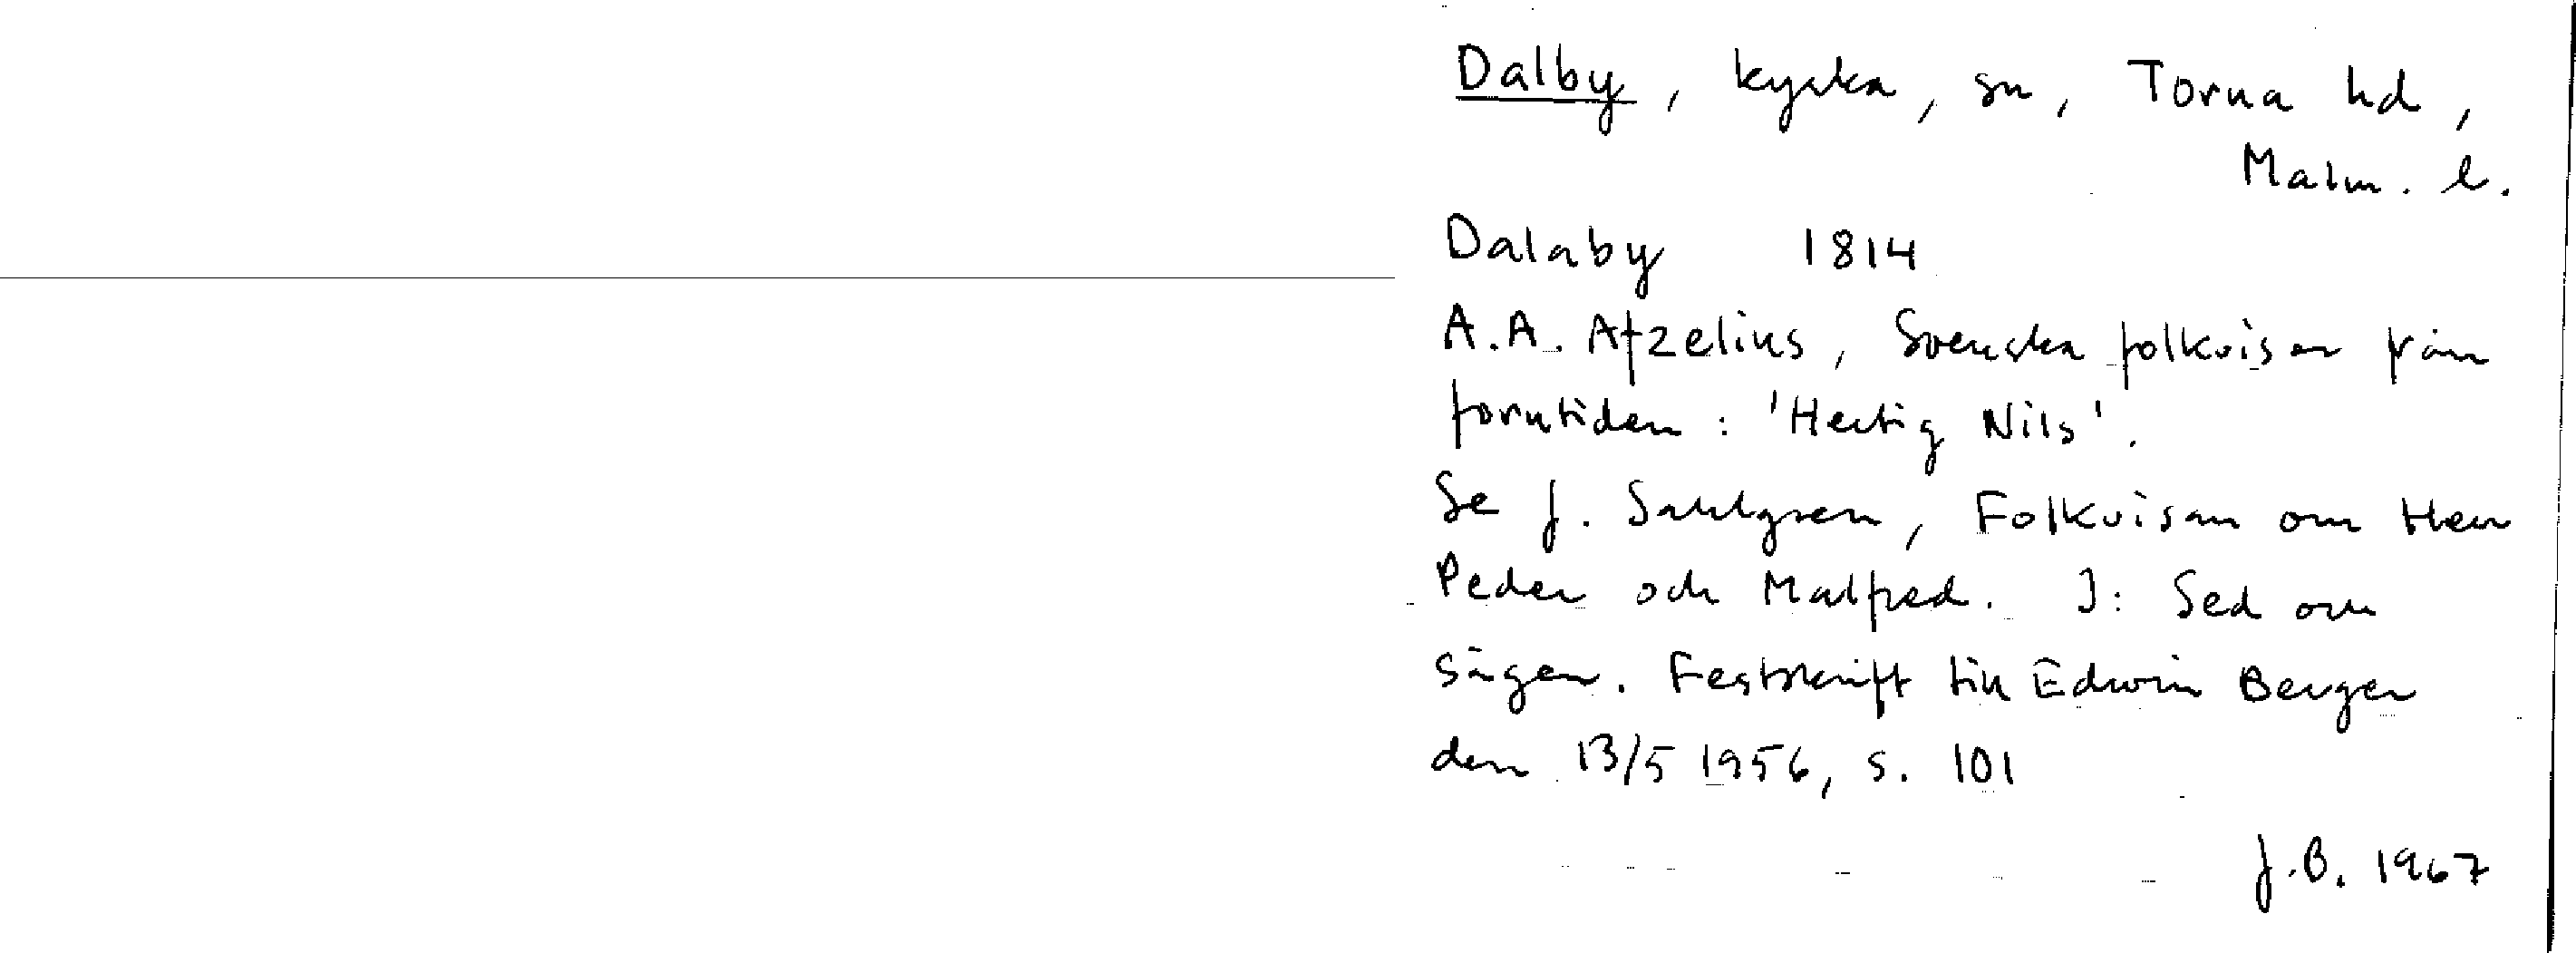 Dalby, kyrka, sn, Torna hd,
Malm. l.
Dalaby 1814
A.A. Afzelius, Svenska folkvisor från
forntiden: 'Hertig Nils'.
Se J. Sahlgren, Folkvisan om Herr
Peder och Malfred. I: Sed och
sägen. Festskrift till Edwin Berger
den 13/5 1956, s. 101
J.B. 1967